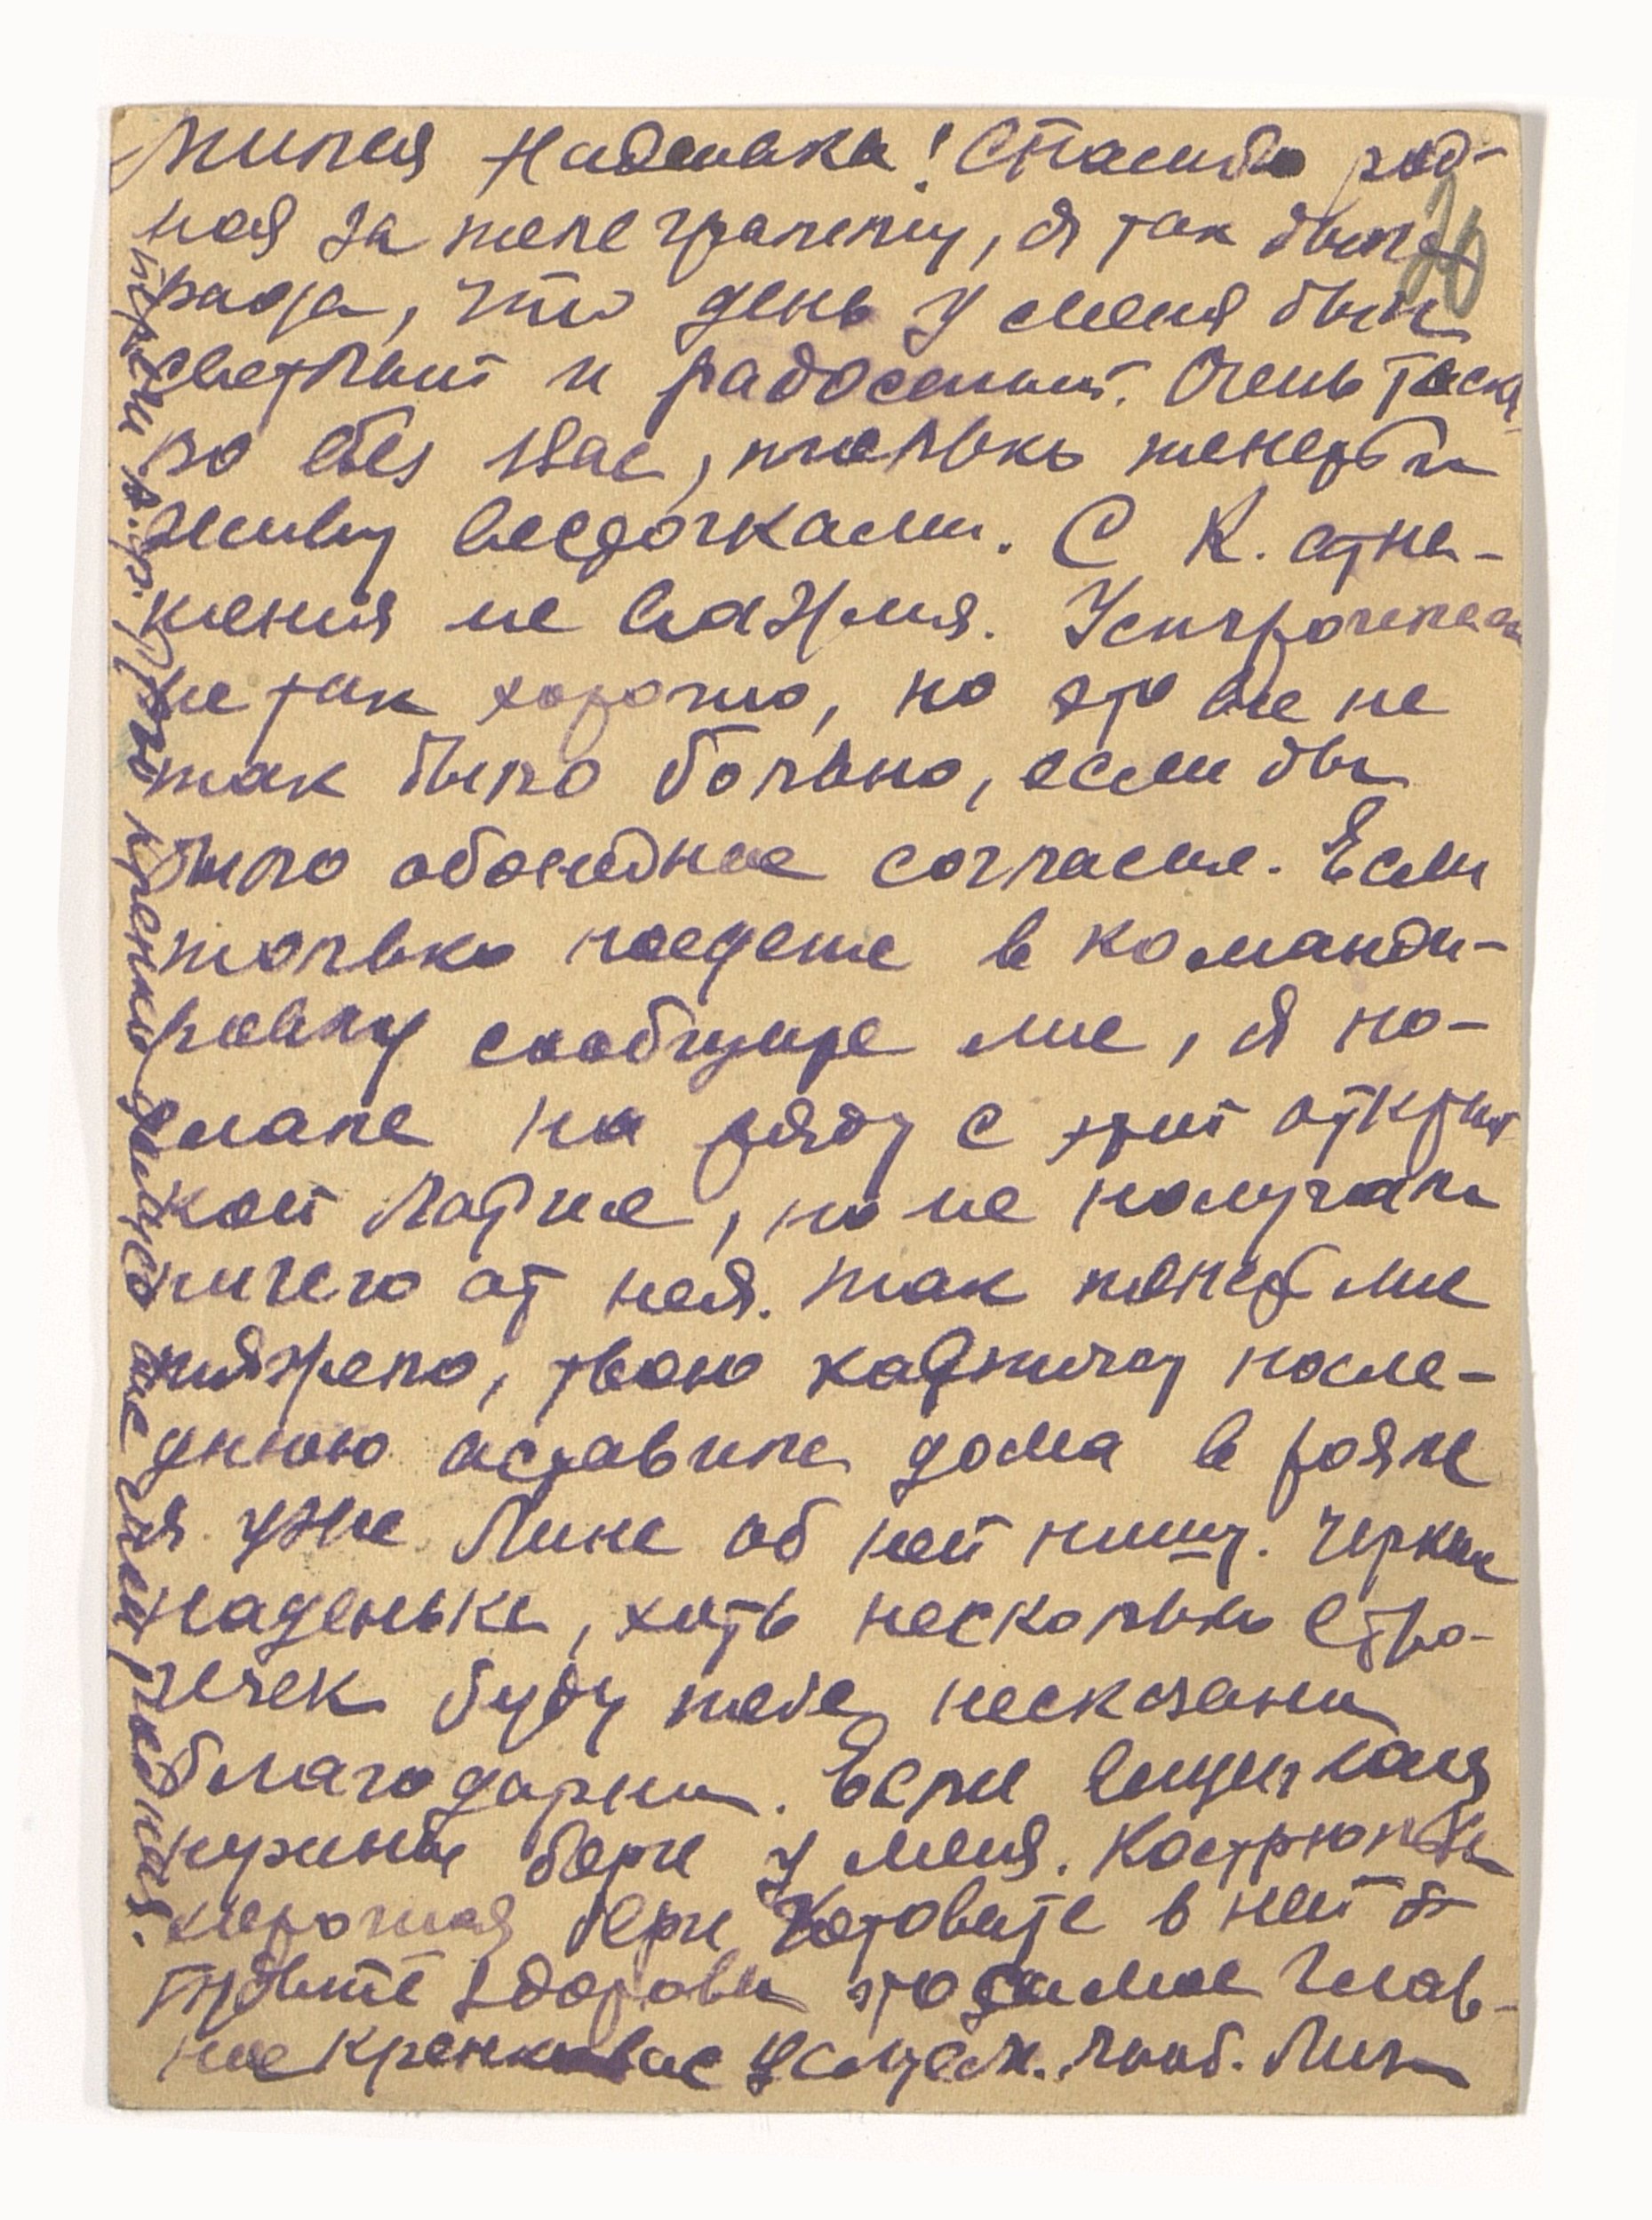 Милая Наденька! Спасибо род-
ная за телеграмму, я так была
рада, что день у меня был
светлый и радосный. Очень тоскл
во без Вас, только теперь и
живу весточками. С К. отно-
шения не важныя. Устроилась
не так хорошо, но это бы не
так было больно, если бы
было обоюдное согласие. Если
только поедете в команди-
ровку сообщите мне, я по-
слала на ряду с этой открыт
кой Лапше, но не получала
ничего от ней. так теперь мне
тяжело, твою карточку после-
днюю оставила дома в рояле
я уже Лине об ней пишу. Черкни
Наденька, хоть несколько стро-
чек буду тебе несказанно
благодарна. Если
нужны бери у меня. Кастрюльки
хорошая бери Готовьте в ней
будьте здоровы это самое глав-
ное крепко вас целую. люб. Лич
20
крепко целую